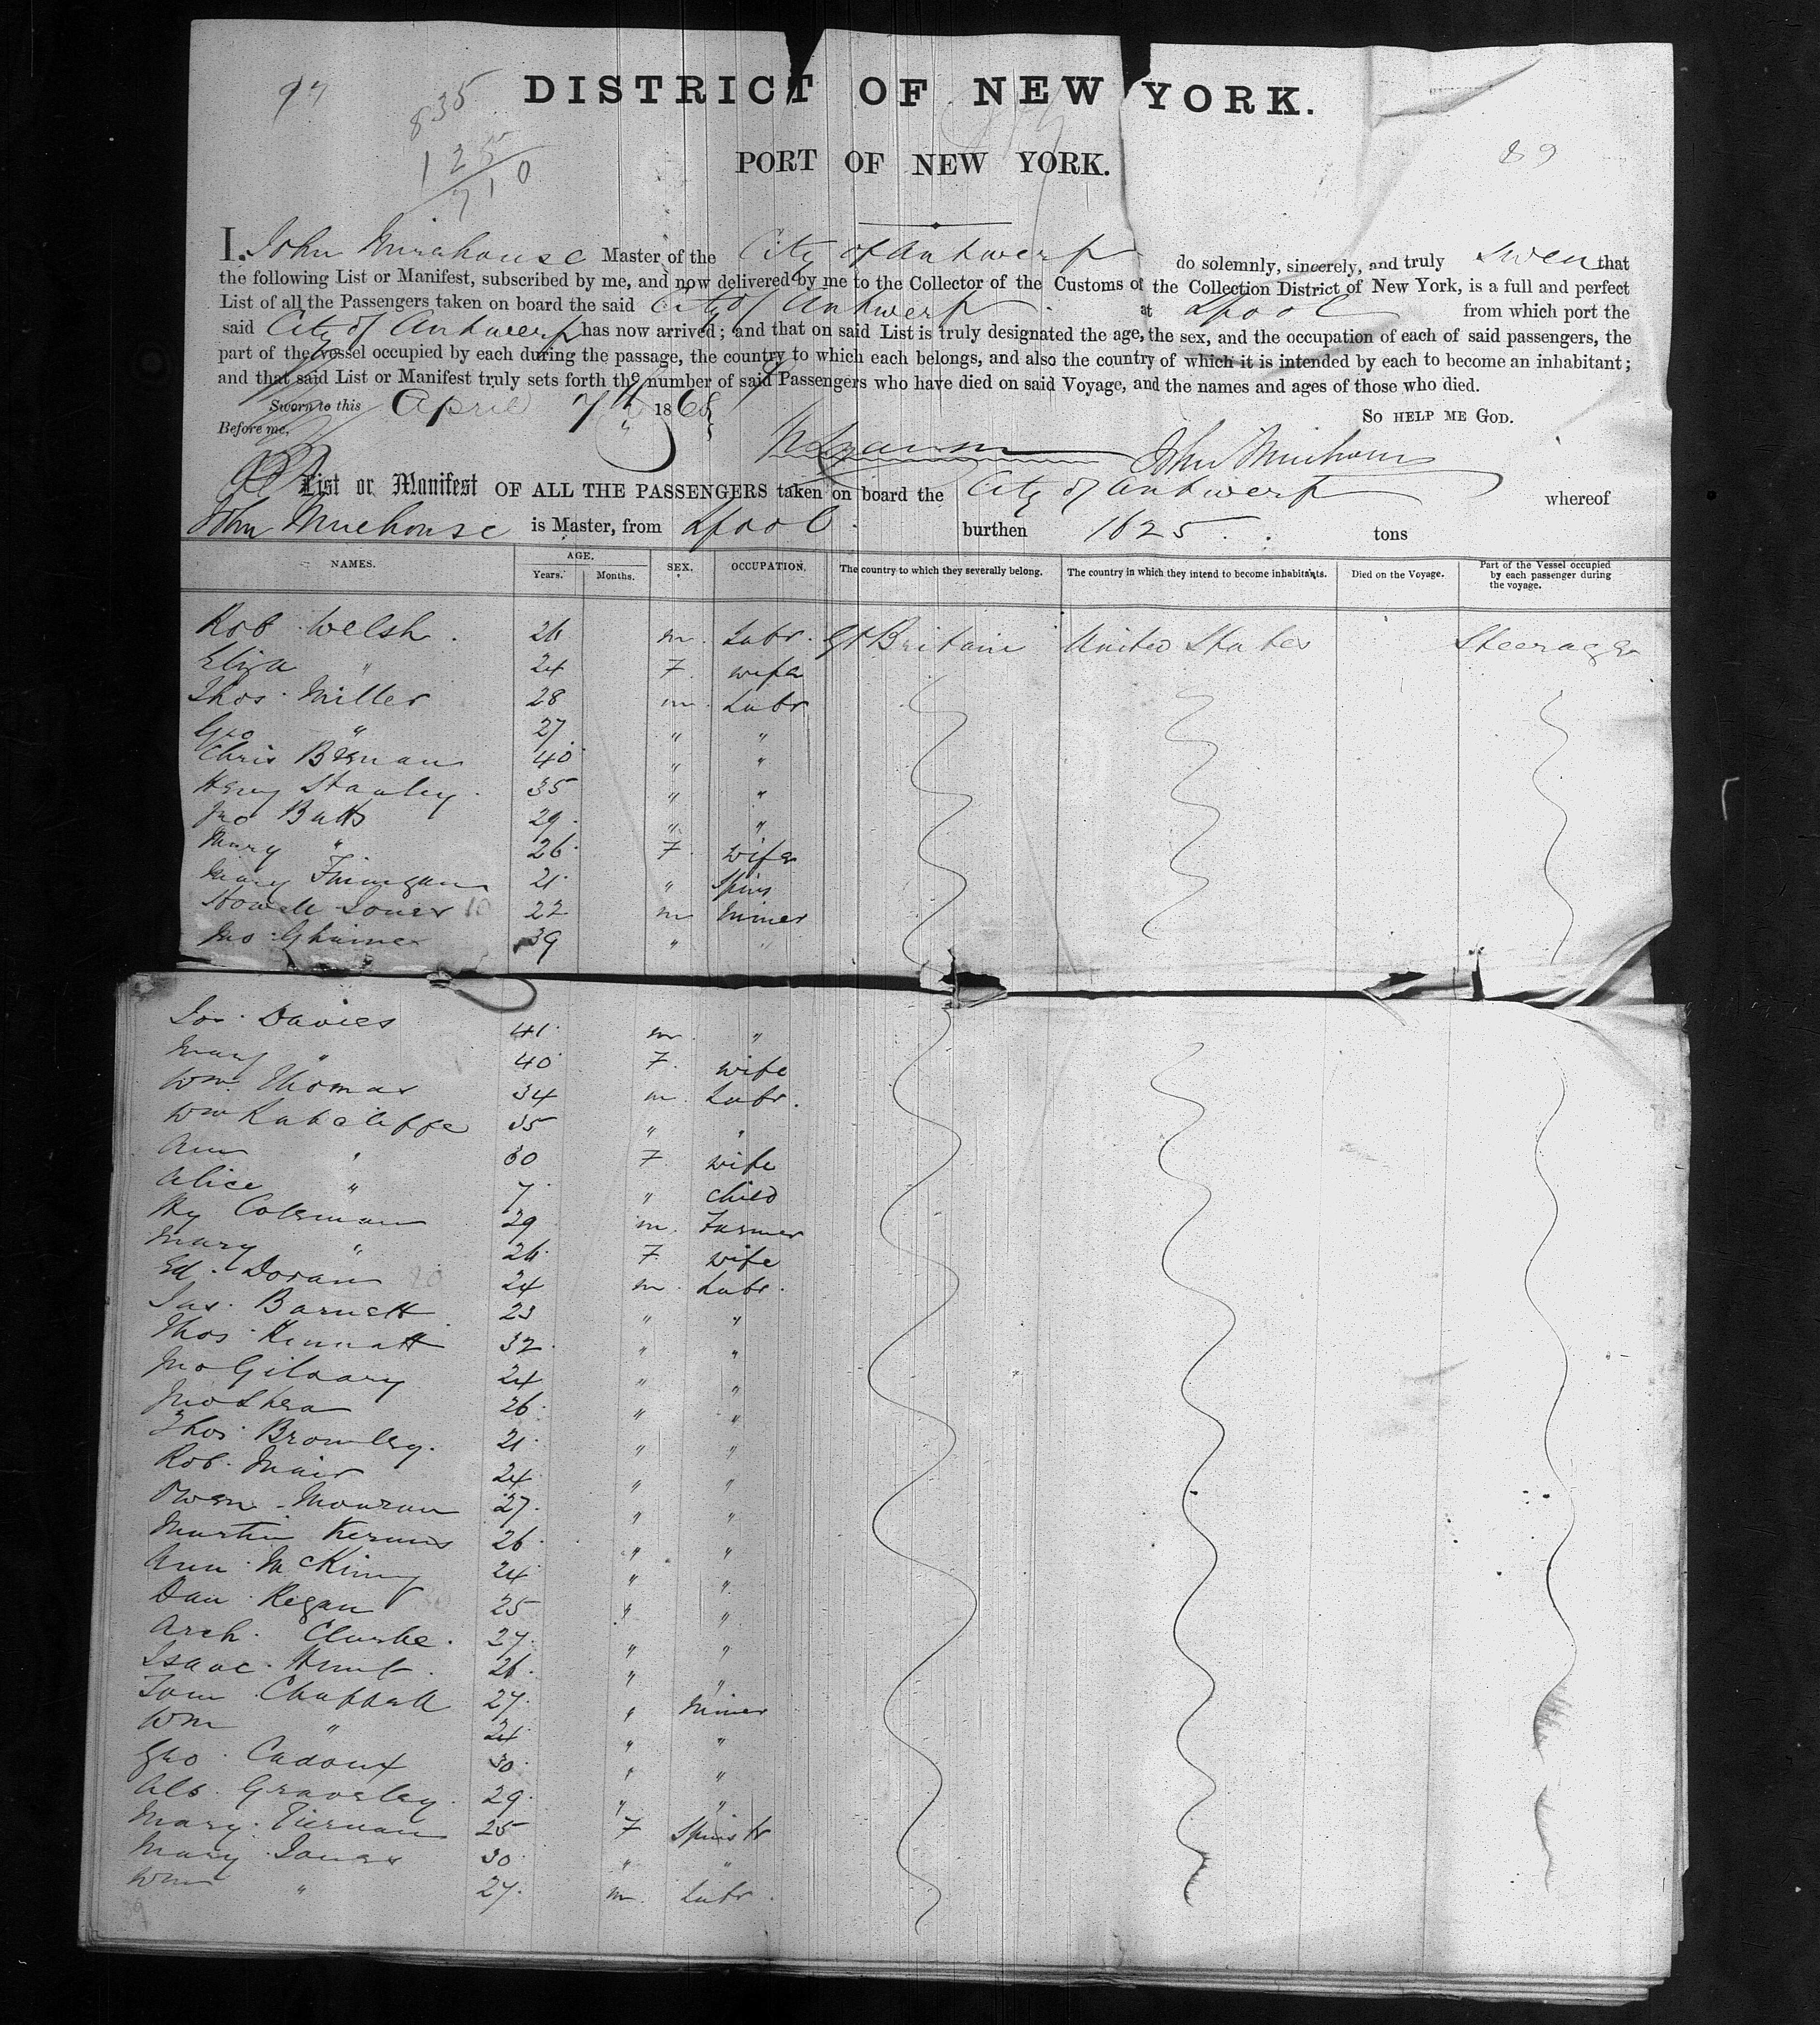 97
835
89
DISTRICT OF NEW YORK.
PORT OF NEW YORK.
I, John Mirehouse Master of the City of Antwerp do solemnly, sincerely, and truly swear that
the following List or Manifest, subscribed by me, and now delivered by me to the Collector of the Customs of the Collection District of New York, is a full and perfect
List of all the Passengers taken on board the said City of Antwerp at Lpool from which port the
said City of Antwerp has now arrived; and that on said List is truly designated the age, the sex, and the occupation of each of said passengers, the
part of the vessel occupied by each during the passage, the country to which each belongs, and also the country of which it is intended by each to become an inhabitant;
and that said List or Manifest truly sets forth the number of said Passengers who have died on said Voyage, and the names and ages of those who died.
Sworn to this April 7th 1868 So help me God.
Before me,
John Mirehouse
List or Manifest OF ALL THE PASSENGERS taken on board the City of Antwerp whereof
John Mirehouse is Master, from Lpool. burthen 1625. tons
NAMES. AGE. Years. Months. SEX. OCCUPATION. The country to which they severally belong. The country in which they intend to become inhabitants. Died on the Voyage. Part of the Vessel occupied by each passenger during the voyage.
Rob Welsh. 26 m. Labr. Gt Britain United States Steerage
Eliza " 24 F. wife
Thos. Miller 28 m. Labr
Geo " 27 " "
Chris 40 " "
Henry Stanley. 35 " "
Jno Butts 29. " "
Mary " 26. F. wife
Mary Finnigan 21. " Spins
Howell Jones 10 22 m miner
Jno 39 " "
Davies 41. m. "
Mary " 40. F. wife
Wm. Thomas 34 m. Labr.
Wm Ratcliffe 35 " "
Ann " 30 F. wife
Alice " 7. " child
Hy Coleman 29 m. Farmer
Mary " 26. F. wife
Ed. Doran 20 24 m. Labr.
Jas. Barnett 23 " "
Thos. Kennett 32. " "
Jno 24 " "
Jno Shea 26. " "
Thos. Bromley. 21. " "
Rob. Mair 24. " "
Owen 27. " "
Martin Kerins 26. " "
Ann McKinny 24 " "
Dan Regan 30 25 " "
Arch. Clarke. 27. " "
Isaac Hunt. 26. " "
Tom Chappell 27. " miner
Wm " 24 " "
Geo. Cadoux 30. " "
Alb. Graveley. 29. " "
Mary Tiernan 25 F Spinstr
Mary Jones 30. " "
Wm " 27. m. Labr.
39